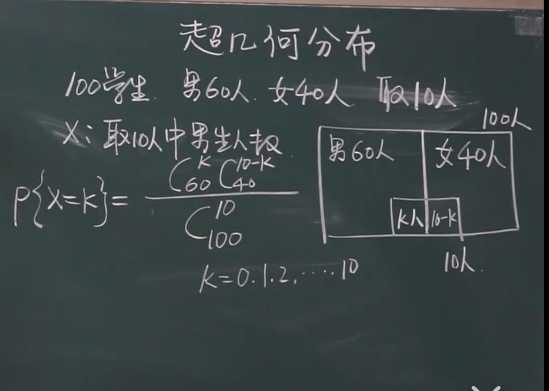 超几何分布
100学生 男60人 女40人 取10人
X: 取10人中男生人数
P{X=K}= C_{60}^{K} C_{40}^{10-K} / C_{100}^{10}
K=0.1.2.....10
100人
男60人 女40人
K人 10-K
10人